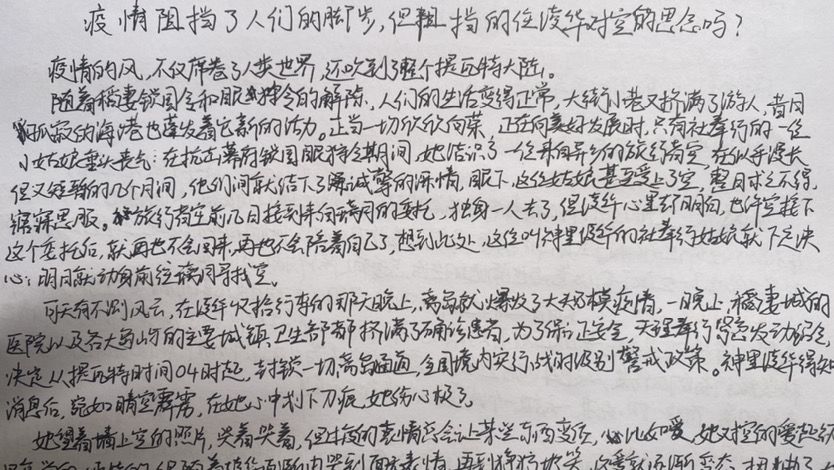 疫情阻挡了人们的脚步,但阻挡的住绫华对空的思念吗?
疫情的风,不仅席卷了人类世界,还吹到了整个提瓦特大陆。
随着稻妻锁国令和眼狩令的解除,人们的生活变得正常,大街小巷又挤满了游人,昔日
孤寂的海港也蓬发着它新的活力。正当一切欣欣向荣,正在向美好发展时,只有社奉行的一位
小姑娘垂头丧气:在抗击幕府锁国眼狩令期间,她结识了一位来自异乡的旅行者空,在似乎漫长
但又短暂的几个月间,他们间就结下了深诚挚的深情,眼下,这位姑娘甚至爱上了空,整日求之不得,
寤寐思服。旅行者空前几日接到来自璃月的委托,独身一人去了,但绫华心里,也许空接下
这个委托后,就再也不会回来,再也不会陪着自己了,想到此处,这位叫神里绫华的社奉行姑娘就下定决
心:明日就动身前往璃月寻找空。
可天有不测风云,在绫华收拾行李的那天晚上,离岛就爆发了大规模疫情,一晚上,稻妻城的
医院以及各大岛屿的主要城镇卫生部都挤满了确诊患者,为了保证安全,天领奉行紧急发动,
决定从提瓦特时间04时起,封锁一切离岛通道,全国境内实行战时级别警戒政策。神里绫华得知
消息后,宛如晴空霹雳,在她心中划下刀痕,她伤心极了。
她望着墙上空的照片,哭着哭着,但